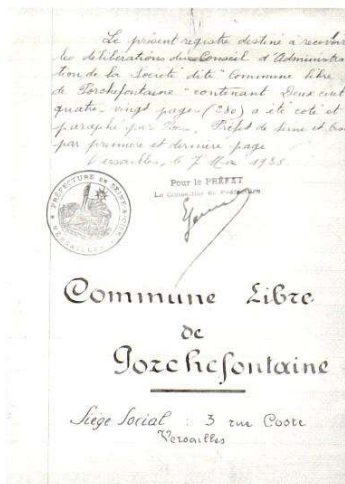 Le présent registre destiné à recevoir
les délibérations du Conseil d'Administra
tion de la Société dite "Commune libre
de Porchefontaine" contenant Deux cent
quatre-vingt pages (280) a été coté et
paraphé par Nous, Préfet de Seine et Oise
par première et dernière page
Versailles, le 7 Mai 1935
Pour le PRÉFET
Le Conseiller de Préfecture
PRÉFECTURE DE SEINE & OISE
VERSAILLES
Commune Libre
de
Porchefontaine
Siège Social : 3 rue Coste
Versailles